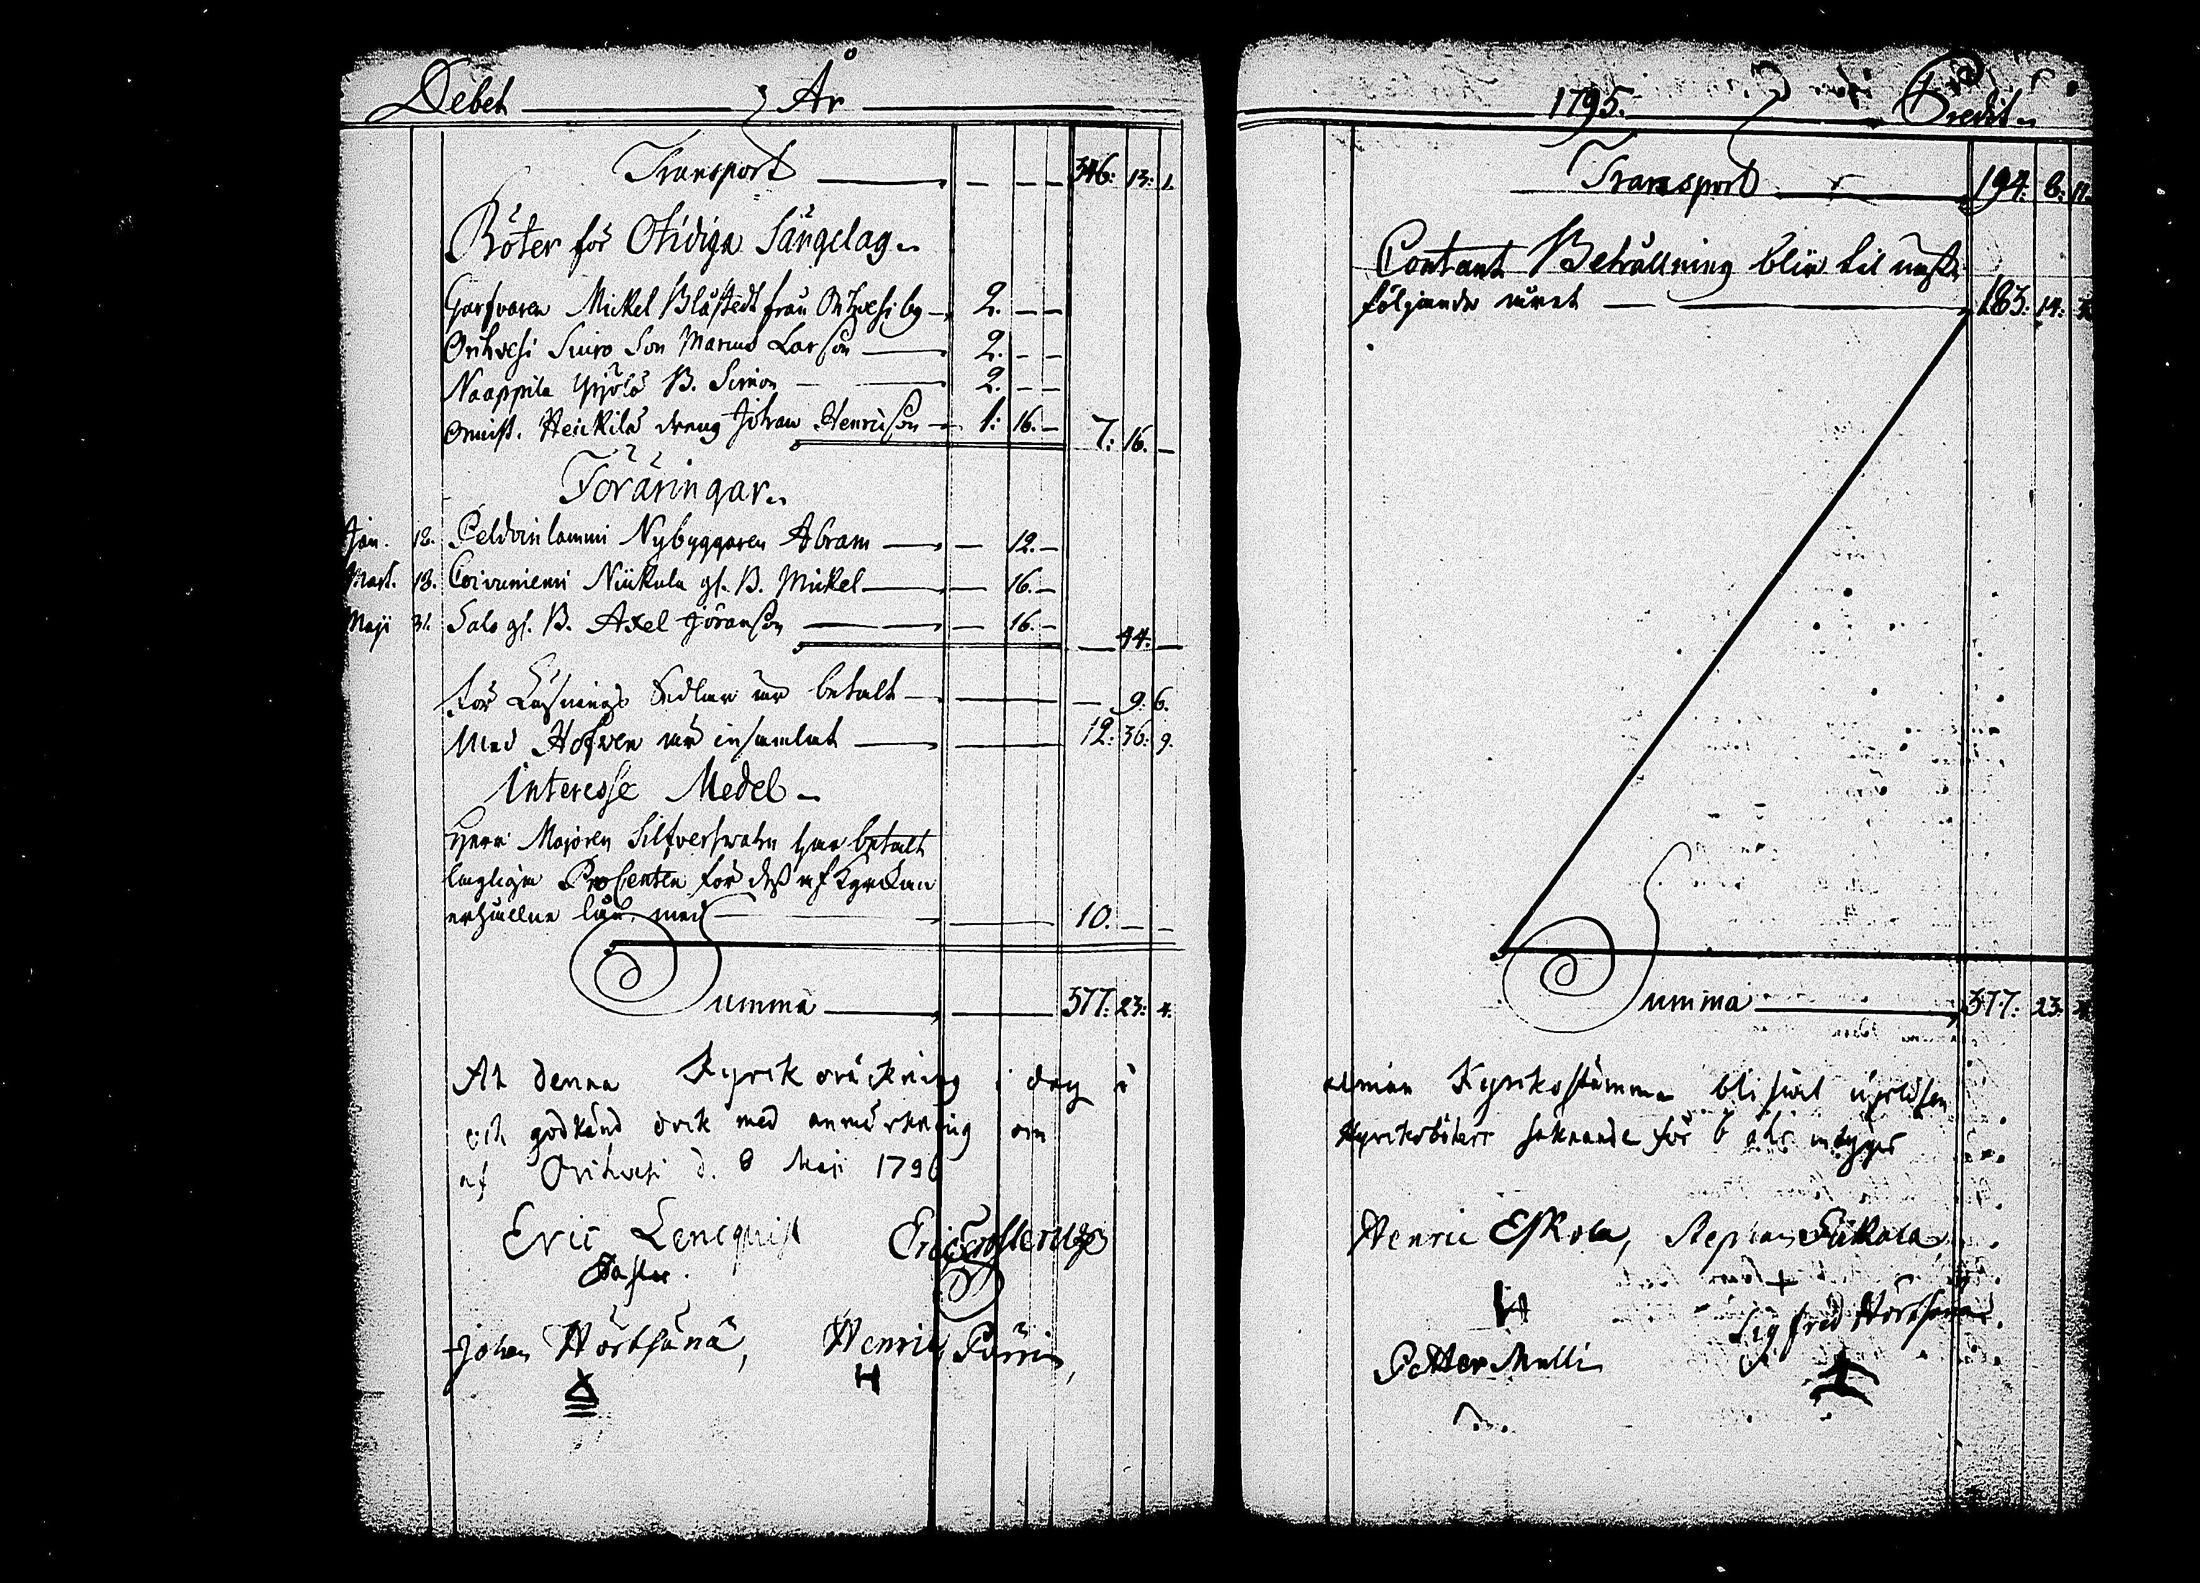 Debet År
Transport 346: 13: 1.
Böter för Otidiga Sängelag.
Garfvaren Mickel Blåstedt från Orihvesi by 2. — —
Orihvesi Suiro Son Marcus Larson 2. — —
Naappila Yrjölä B. Simon 2. — —
Onnist. Heickilä dreng Johan Henricson 1: 16. — 7: 16. —
Föräringar.
Jan. 18. Peldoinlammi Nybyggaren Abram — 12. —
Mart. 13. Coivuniemi Niukula gl. B. Mickel — 16. —
Maji 31. Salo gl. B. Axel Jöranson — 16. — — 44. —
För Lysnings Sedlar är betalt — 9: 6.
Med Hofven är insamlat 12: 36: 9.
Interesse Medel
Herr Majoren Silfversvahn har betalt
laglige Procenten för dess af Kyrckan
erhållne lån med 10. — —
Summa 377: 23: 4.
At denna Kyrckoräckning i dag i
och godkänd dock med anmärkning om
af Orihvesi d. 8 Maji 1796
Eric Lencquist
Pastor.
Johan Hörtsänä, Henric Pärri,
1795. Credit.
Transport 194: 8: 11.
Contant Behållning blir til nästa
följande året 183: 14: 5
Summa 377: 23: 4
alman Kyrkostämma blifwit upläsen
Kyrkoböter saknande för
Henric Eskola, Stephan Eukola
Sigfred Hörtsänä.
Petter Mulli